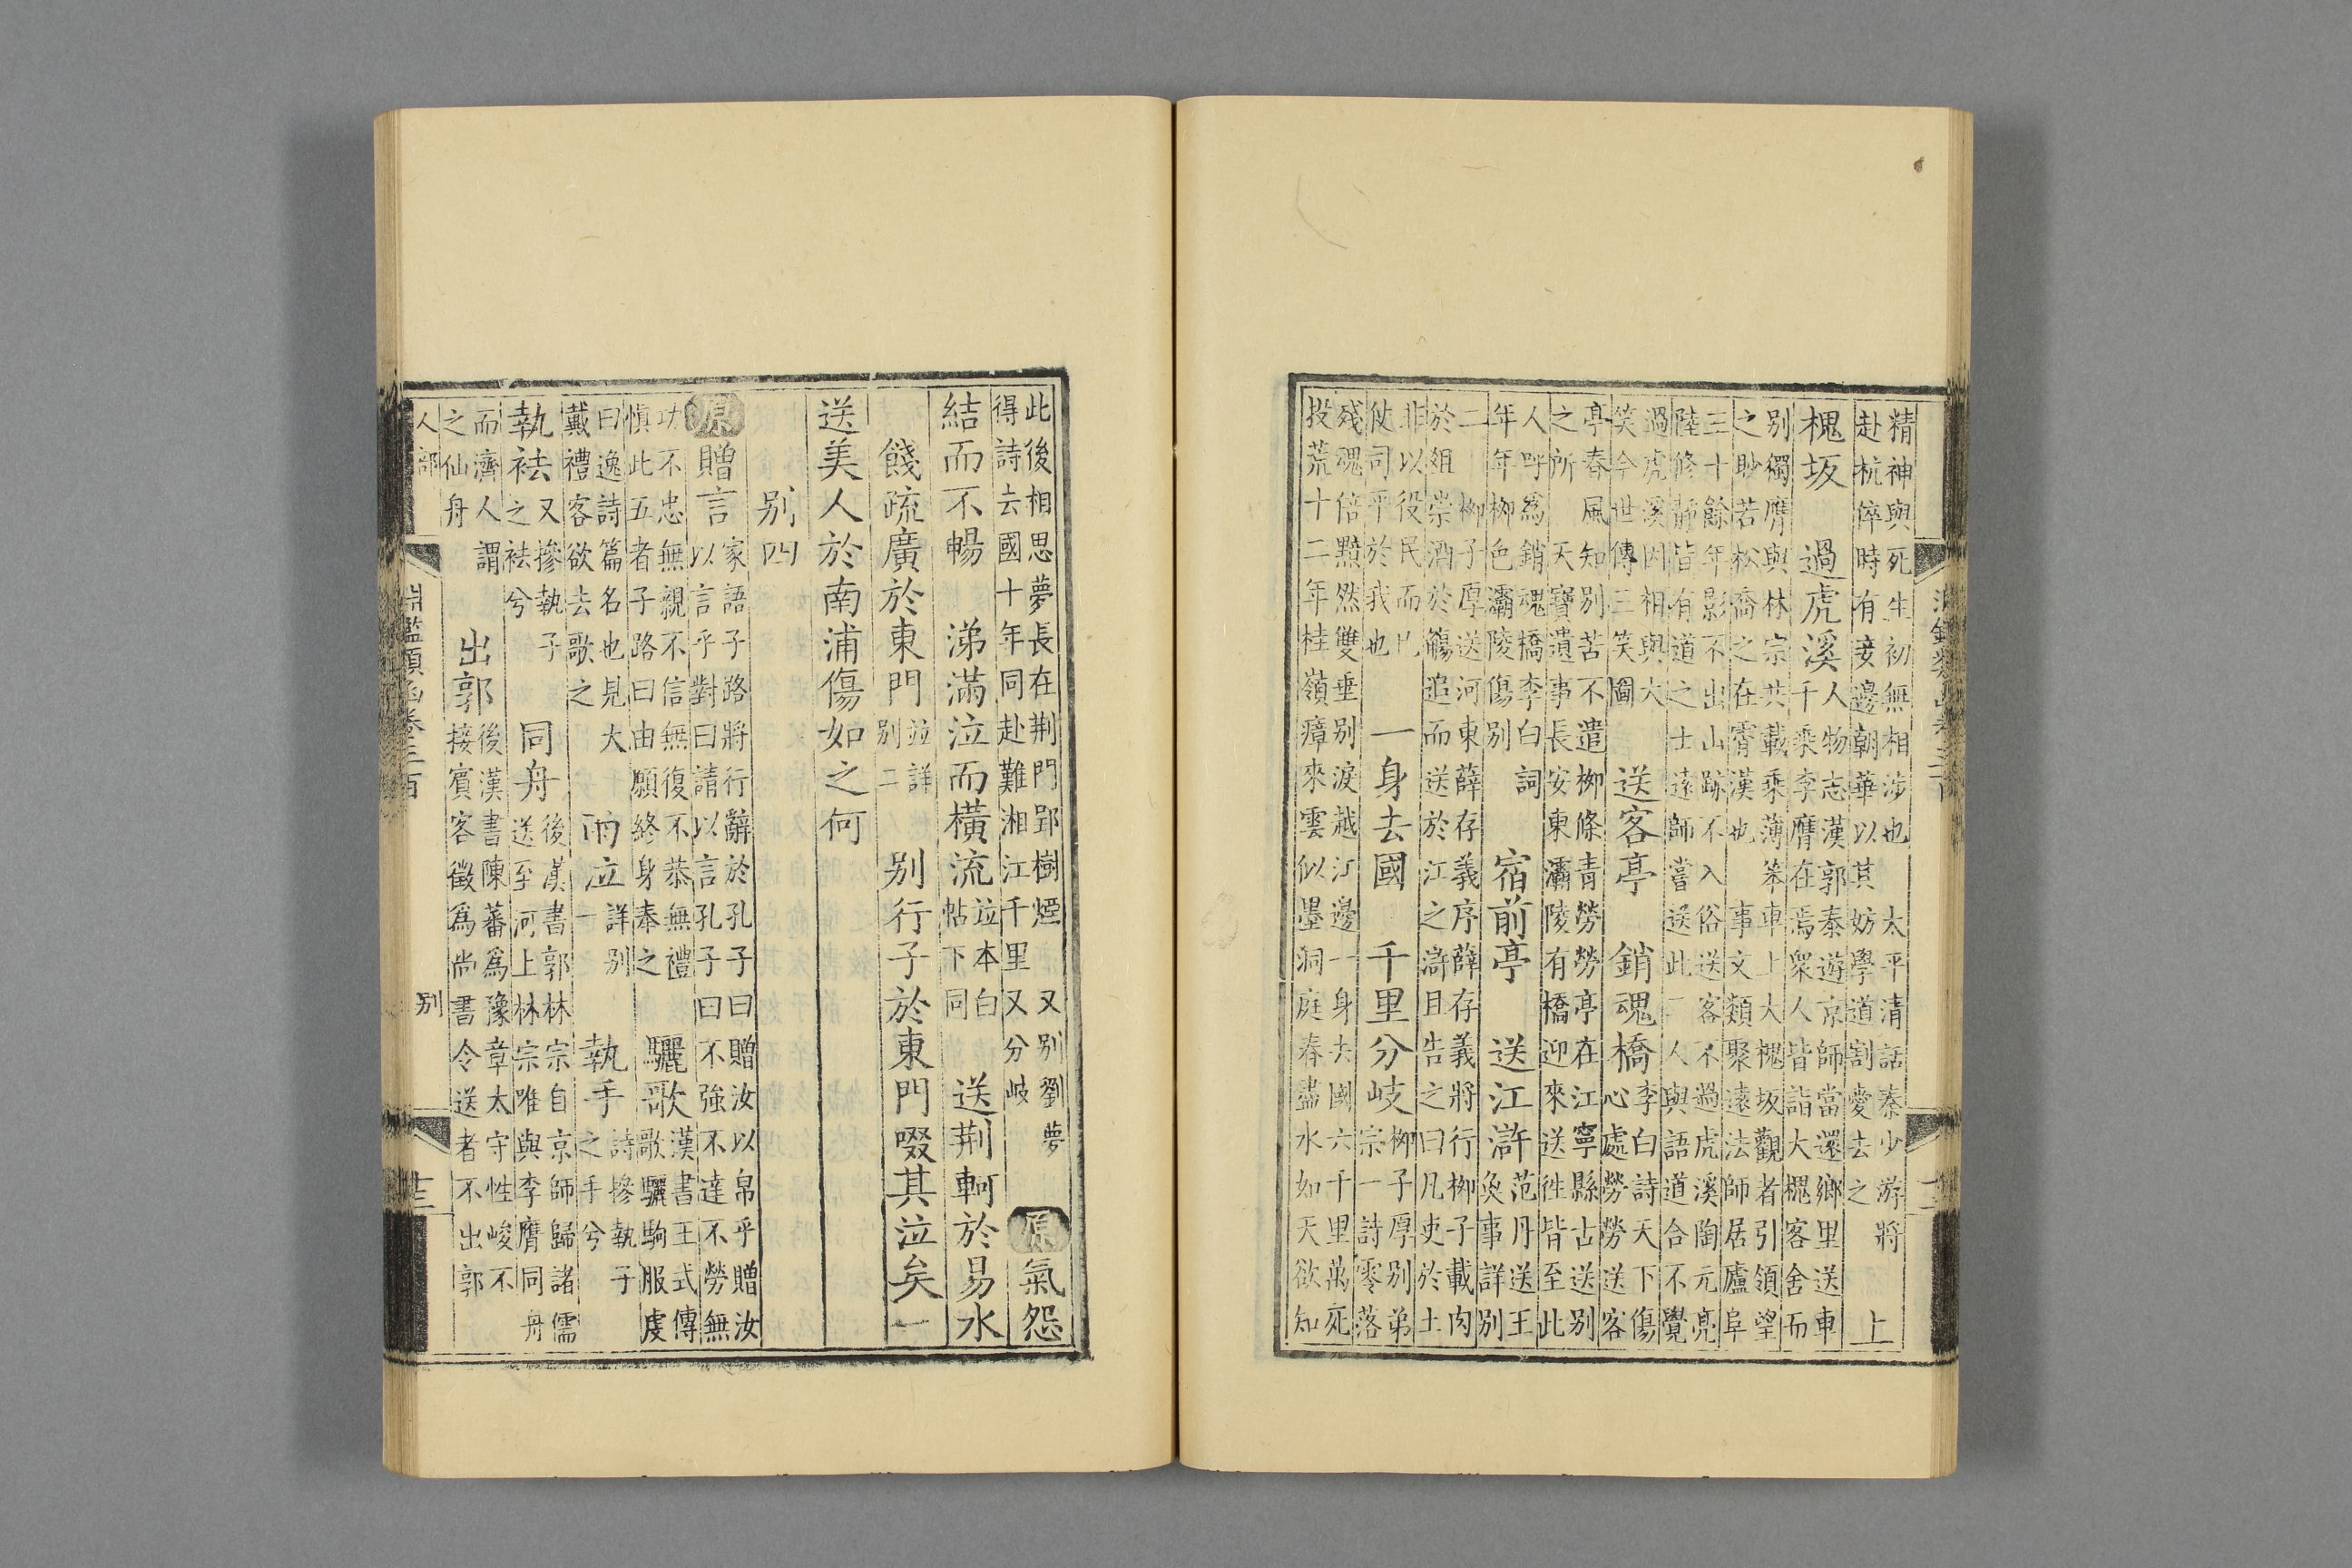 精神與死生初無相涉也 太平清話秦少游將
赴杭倅時有妾邊朝華以其妨學道割愛去之
上
槐坂 過虎溪
人物志漢郭泰遊京師當還鄉里送車
千乘李膺在焉衆人皆詣大槐客舍而
别獨膺與林宗共載乘薄笨車上大槐坂觀者引領望
之眇若松喬之在霄漢也 事文類聚遠法師居廬阜
三十餘年影不出山跡不入俗送客不過虎溪陶元亮
陸修靜皆有道之士遠師嘗送此二人與語道合不覺
過虎溪因相與大
笑今世傳三笑圖
送客亭 銷魂橋
李白詩天下傷
心處勞勞送客
亭春風知别苦不遣柳條青勞勞亭在江寧縣古送别
之所 天寶遺事長安東灞陵有橋迎來送徃皆至此
人呼爲銷魂橋李白詞
年年柳色灞陵傷别
宿前亭 送江滸
范丹送王
奐事詳别
二 柳子厚送河東薛存義序薛存義將行柳子載肉
於俎崇酒於觴追而送於江之滸且告之曰凡吏於土
非以役民而已
使司平於我也
一身去國 千里分岐
柳子厚别弟
宗一詩零落
殘魂倍黯然雙垂别淚越江邊一身去國六千里萬死
投荒十二年桂嶺瘴來雲似墨洞庭春盡水如天欲知
此後相思夢長在荆門郢樹煙 又别劉夢
得詩去國十年同赴難湘江千里又分岐
原 氣怨
結而不暢 涕滿泣而横流
並本白
帖下同
送荆軻於易水
餞疏廣於東門
並詳
别二
别行子於東門啜其泣矣一
送美人於南浦傷如之何
别四
原 贈言
家語子路將行辭於孔子曰贈汝以帛乎贈汝
以言乎對曰請以言孔子曰不強不達不勞無
功不忠無親不信無復不恭無禮
慎此五者子路曰由願終身奉之
驪歌
漢書王式傳
歌驪駒服虔
曰逸詩篇名也見大
戴禮客欲去歌之
雨泣
詳别
一
執手
詩摻執子
之手兮
執袪
又摻執子
之袪兮
同舟
後漢書郭林宗自京師歸諸儒
送至河上林宗唯與李膺同舟
而濟人謂
之仙舟
出郭
後漢書陳蕃爲豫章太守性峻不
接賓客徵爲尚書令送者不出郭
人部
淵鑑類函卷三百
别